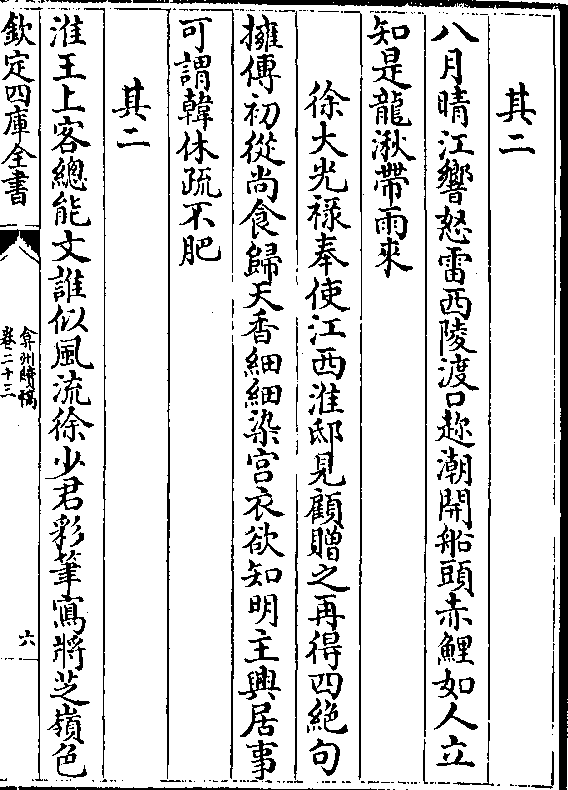 其二
八月晴江響怒雷西陵渡口趂潮開船頭赤鯉如人立
知是龍湫帶雨來
徐大光禄奉使江西淮邸見顧贈之再得四絶句
擁傳初從尚食歸天香細細染宫衣欲知明主興居事
可謂韓休疏不肥
其二
淮王上客總能文誰似風流徐少君彩筆寫將芝嶺色
欽定四庫全書
弇州續稿
卷二十三
六